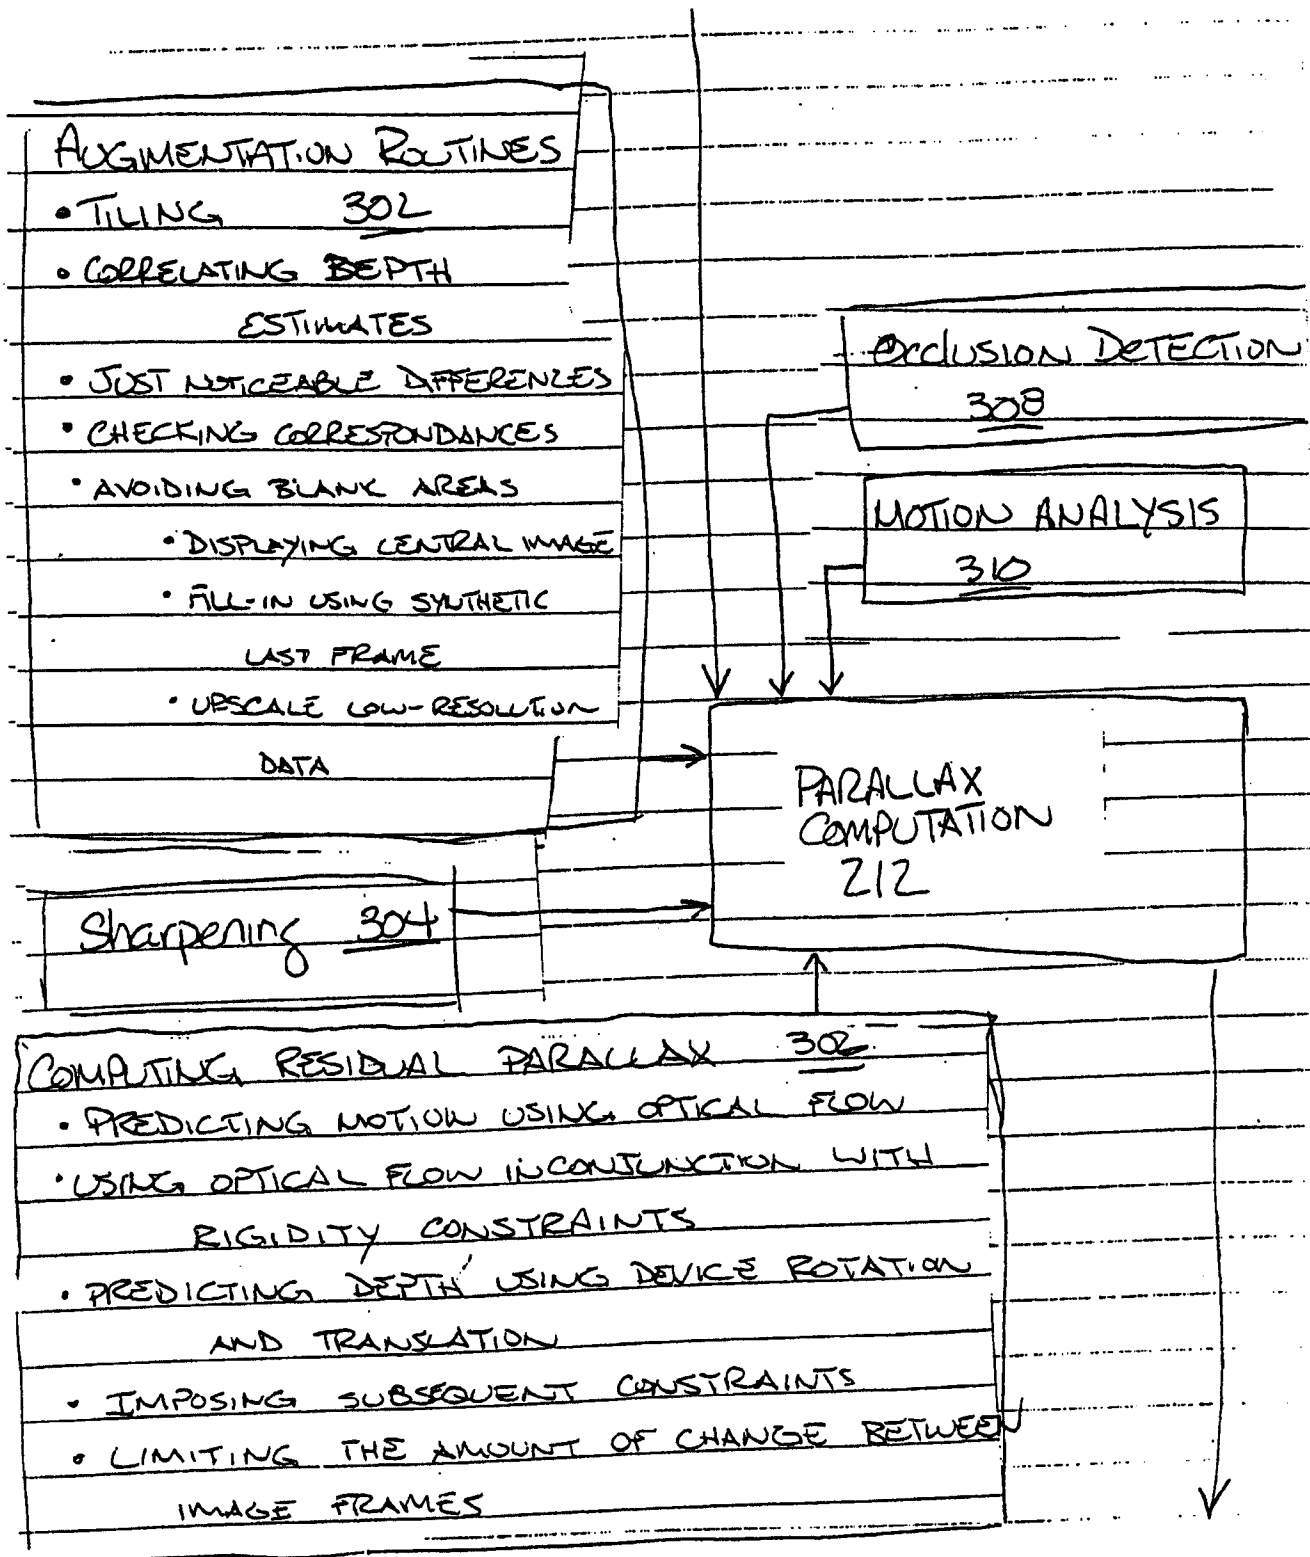 AUGMENTATION ROUTINES
• TILING 302
• CORRELATING DEPTH
ESTIMATES
• JUST NOTICEABLE DIFFERENCES
• CHECKING CORRESPONDANCES
• AVOIDING BLANK AREAS
• DISPLAYING CENTRAL IMAGE
• FILL-IN USING SYNTHETIC
LAST FRAME
• UPSCALE LOW-RESOLUTION
DATA
Occlusion Detection
308
MOTION ANALYSIS
310
PARALLAX
COMPUTATION
212
Sharpening 304
COMPUTING RESIDUAL PARALLAX 306
• PREDICTING MOTION USING OPTICAL FLOW
• USING OPTICAL FLOW IN CONJUNCTION WITH
RIGIDITY CONSTRAINTS
• PREDICTING DEPTH USING DEVICE ROTATION
AND TRANSLATION
• IMPOSING SUBSEQUENT CONSTRAINTS
• LIMITING THE AMOUNT OF CHANGE BETWEEN
IMAGE FRAMES